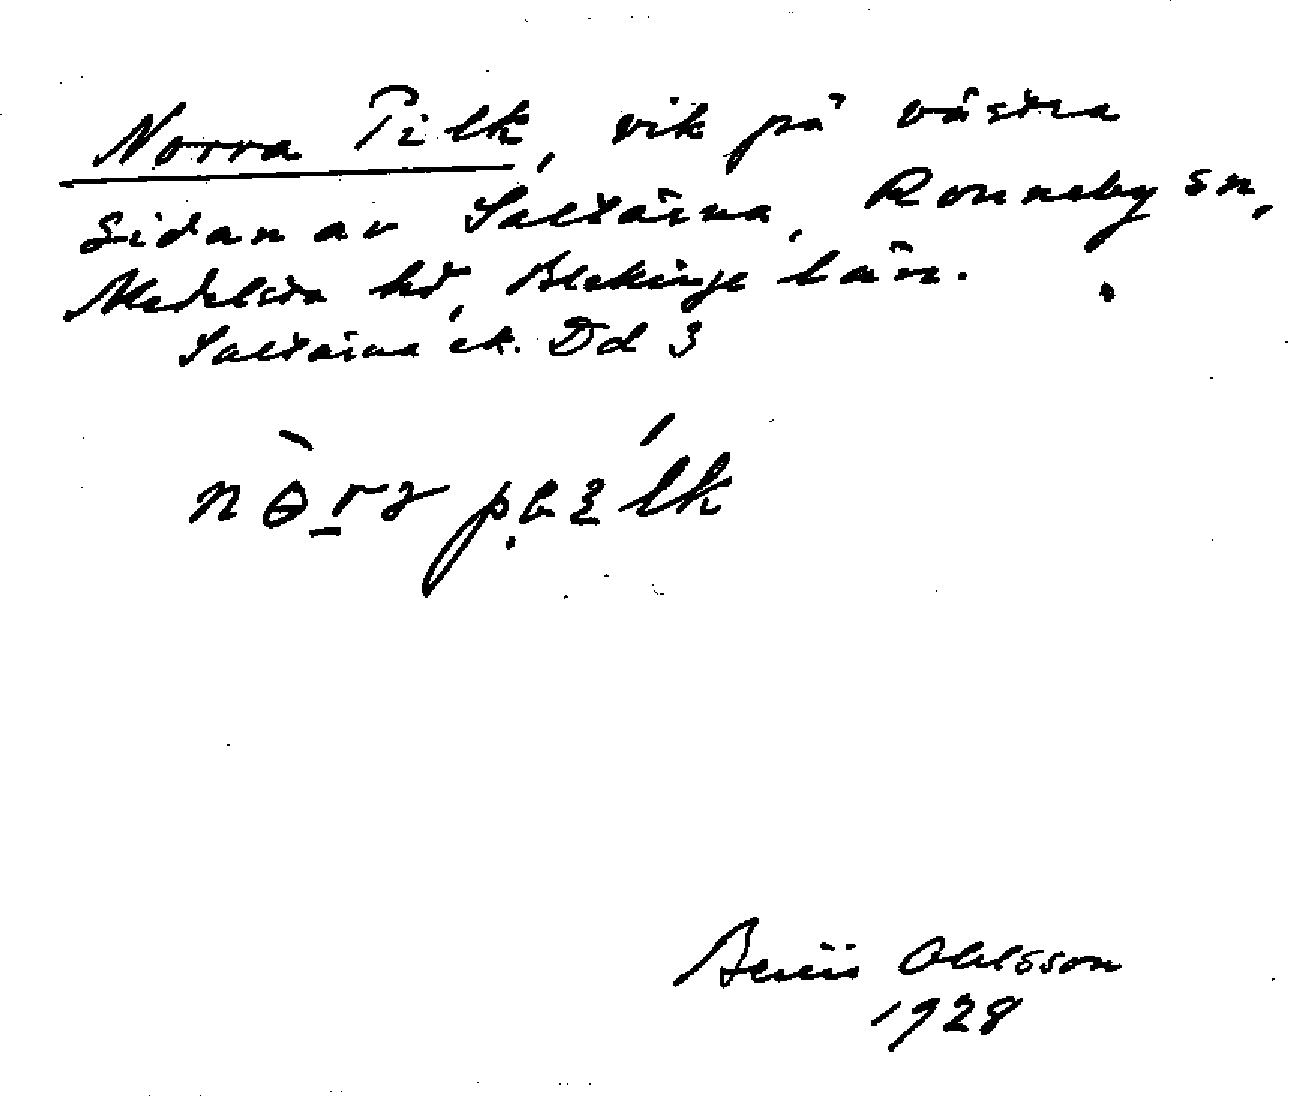 Norra Pilk, vik på västra
sidan av Saltärna, Ronneby sn,
Medelsta hd, Blekinge län.
Saltärna ek. Dd 3
Ohlsson
1928